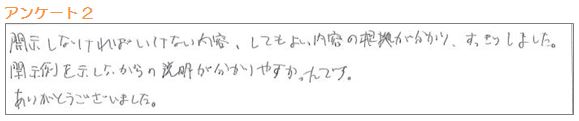 アンケート2
開示しなければいけない内容、してもよい内容の根拠が分かり、すっきりしました。
開示例を示しながらの説明が分かりやすかったです。
ありがとうございました。